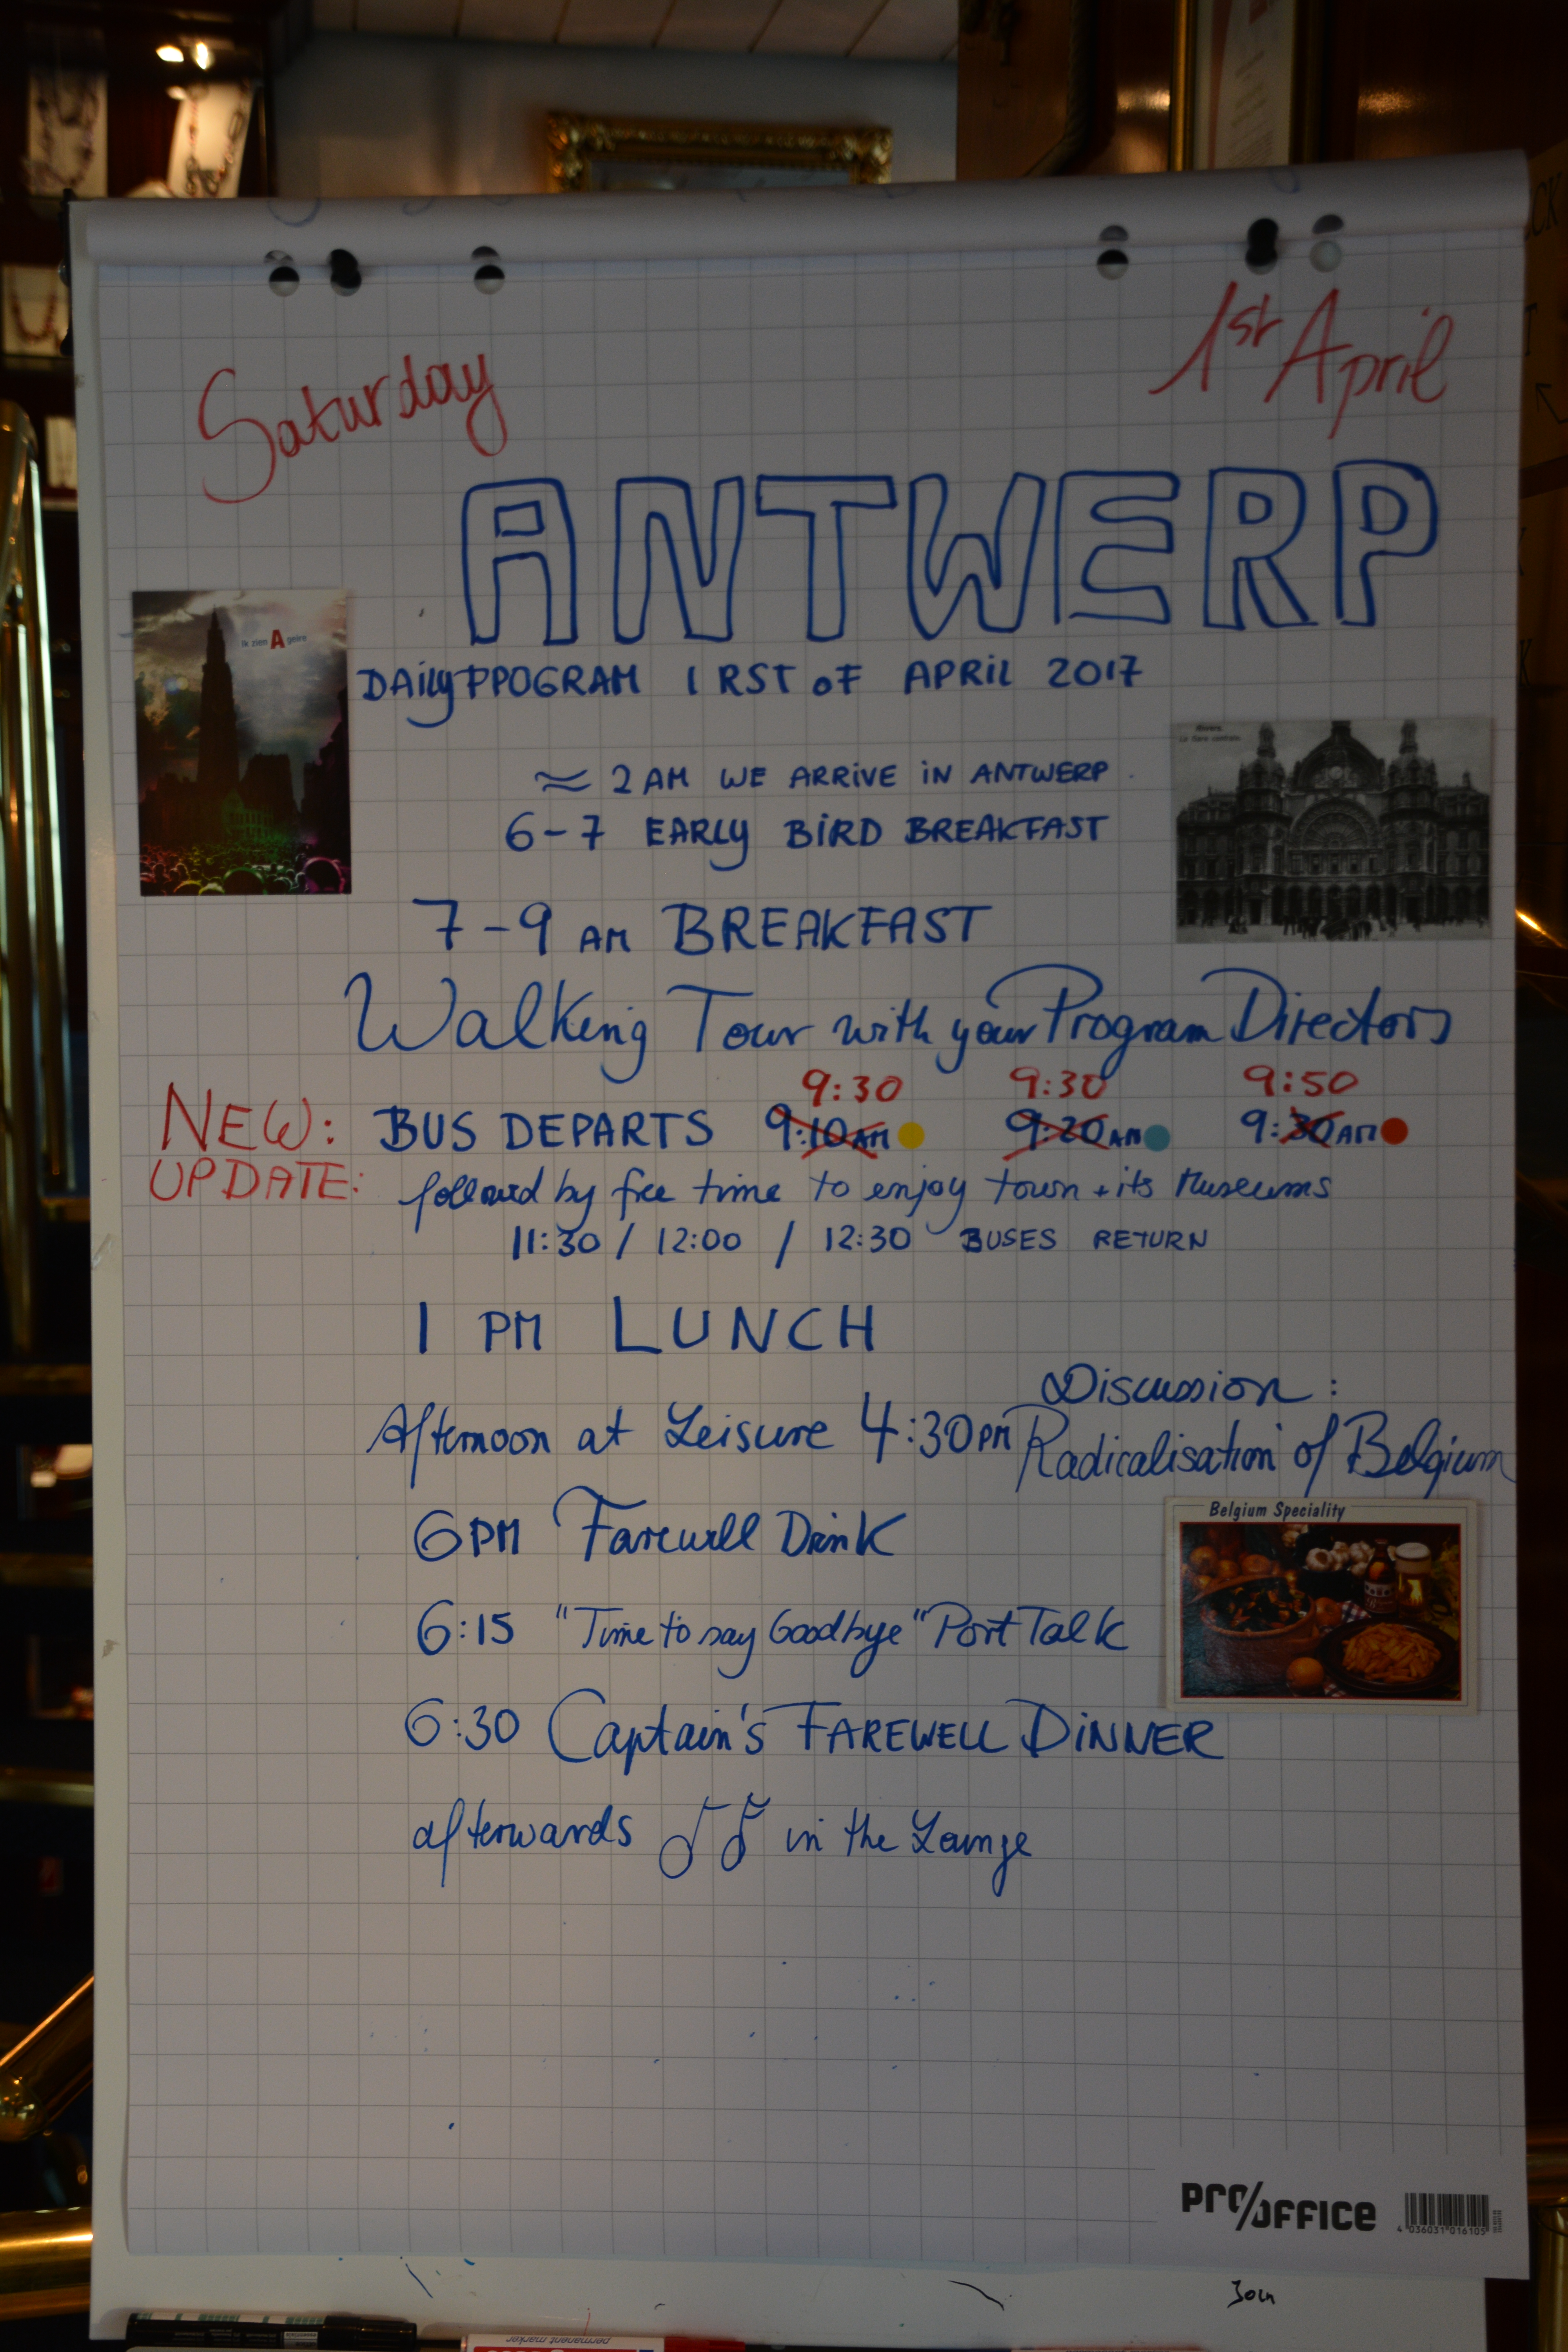 Saturday
1st April
ANTWERP
Ik zien A geire
DAILY PPOGRAM 1 RST OF APRIL 2017
≈ 2 AM WE ARRIVE IN ANTWERP
Anvers.
La Gare centrale.
6-7 EARLY BIRD BREAKFAST
7-9 AM BREAKFAST
Walking Tour with your Program Directors
9:30 9:30 9:50
NEW: BUS DEPARTS 9:10 AM 9:20 AM 9:30 AM
UPDATE: followed by free time to enjoy town + its Museums
11:30 / 12:00 / 12:30 BUSES RETURN
1 PM LUNCH
Discussion:
Afternoon at Leisure 4:30 PM Radicalisation of Belgium
6 PM Farewell Drink
Belgium Speciality
6:15 "Time to say Goodbye" Port Talk
6:30 Captain's FAREWELL DINNER
afterwards ♪♪ in the Lounge
pro/office
4 036031 016105
Join
permanent marker